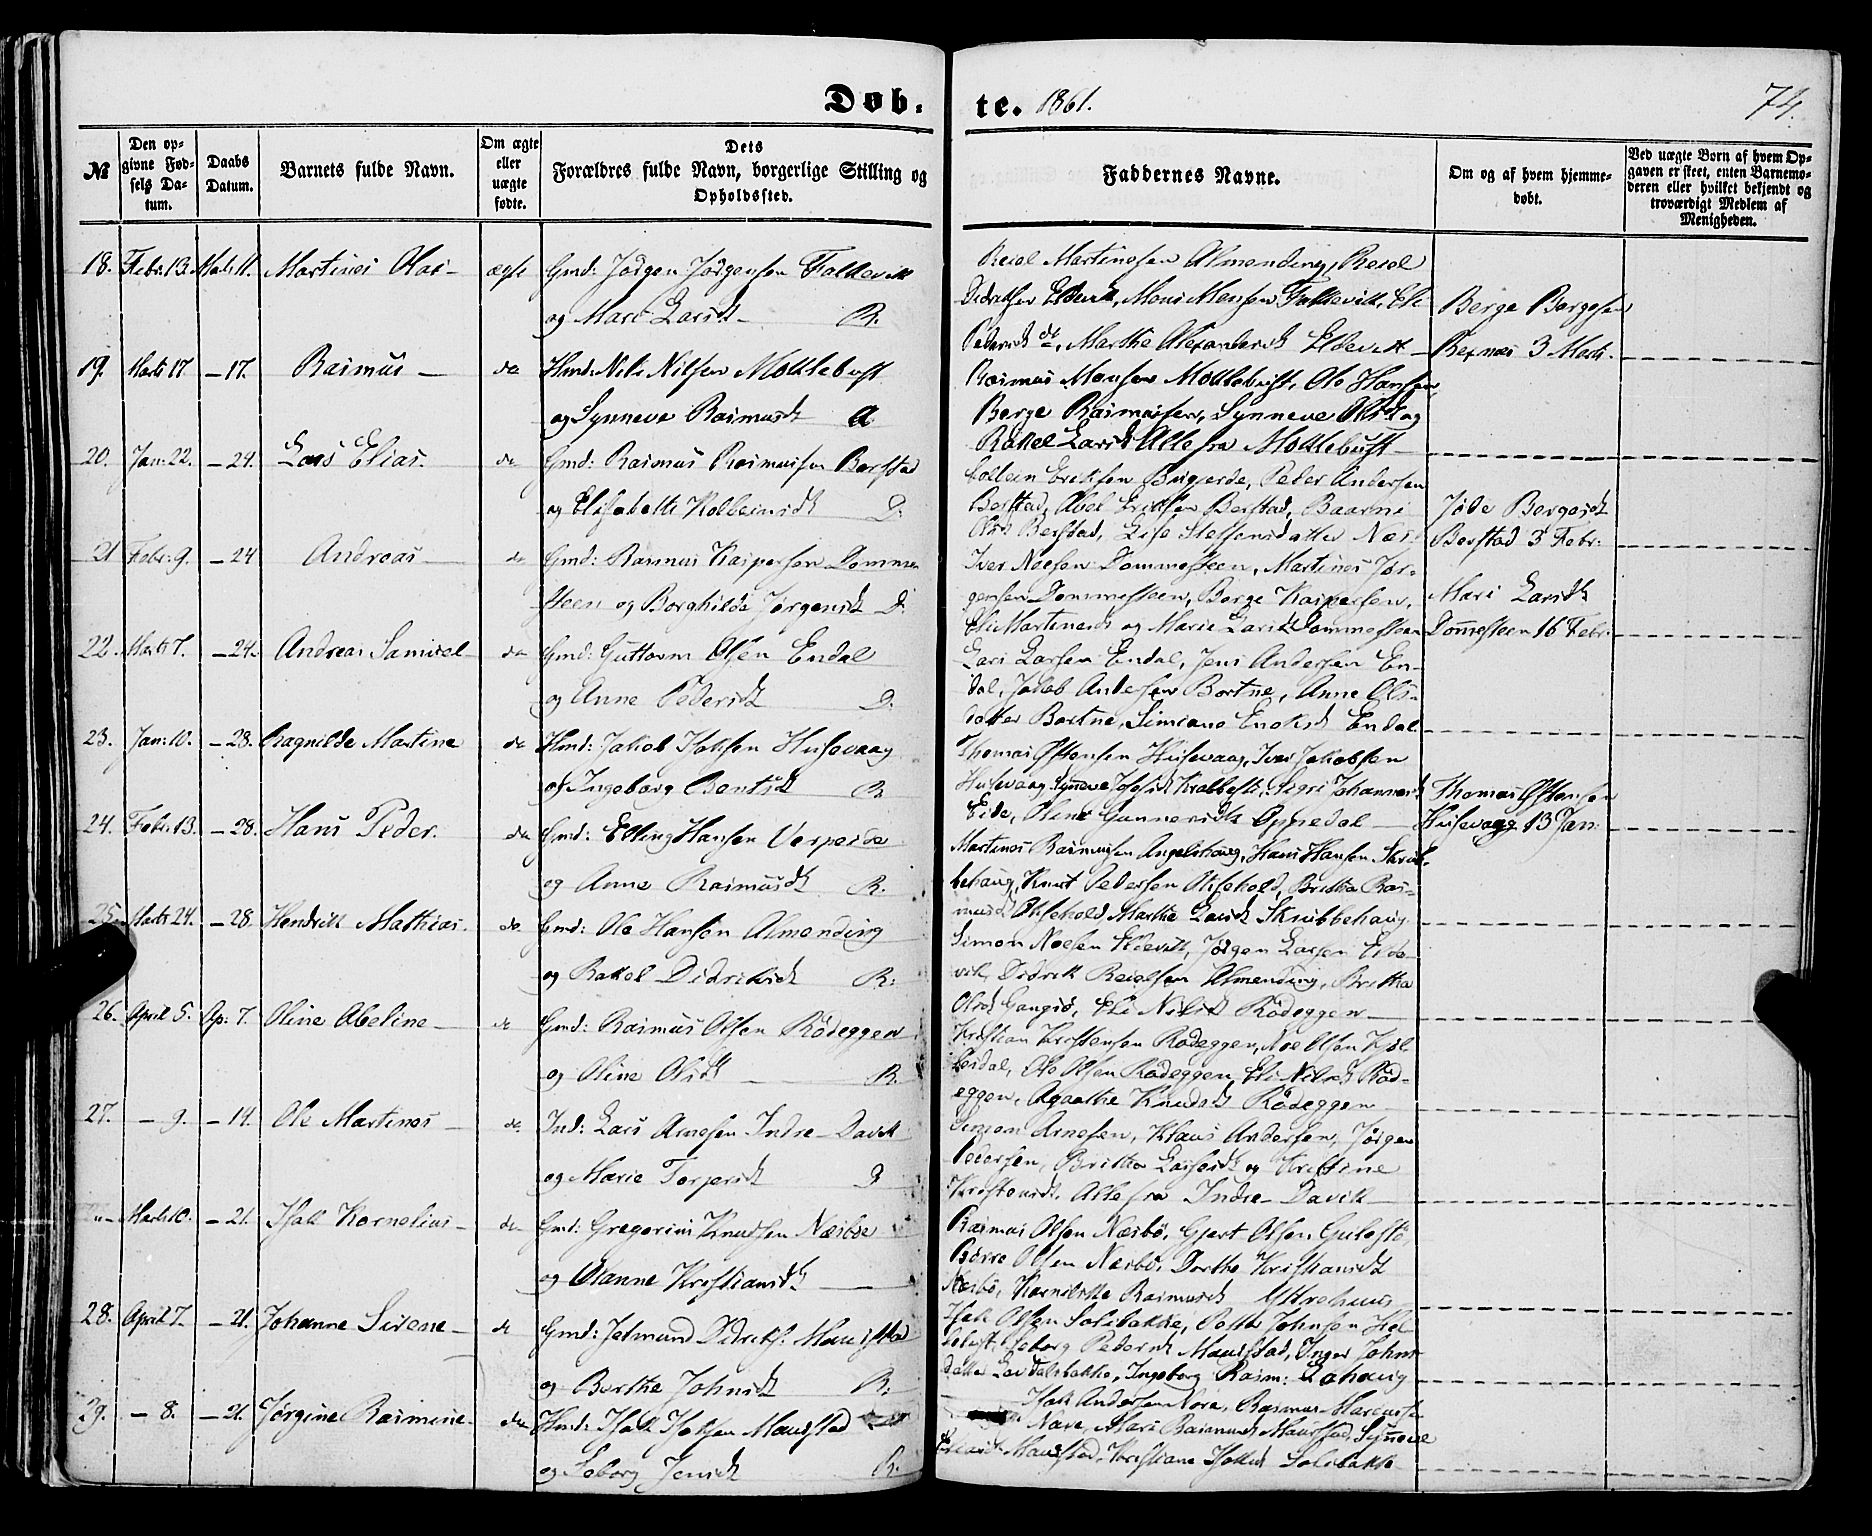 Døb-
te. 1861.
74.
№
Den op-
givne Fød-
sels Da-
tum.
Daabs
Datum.
Barnets fulde Navn.
Om ægte
eller
uægte
fødte.
Dets
Forældres fulde Navn, borgerlige Stilling og
Opholdssted.
Faddernes Navne.
Om og af hvem hjemme-
døbt.
Ved uægte Børn af hvem Op-
gaven er skeet, enten Barnemo-
deren eller hvilket bekjendt og
troværdigt Medlem af
Menigheden.
18. Febr: 13. Marts 11. Martines Olai ægte Gmd: Jørgen Jørgensen Faldevik
og Mari Larsd. B.
Almending,
Mons Monsen Faldevik, Eli
Pedersd do, Marthe Alexandersd Eldevik
Berge Børgesen
3 Marts.
19. Marts 17 – 17. Rasmus do Hmd: Nils Nilsen Mollebust
og Synneve Rasmusd A.
Rasmus Monsen Mollebust, Ole Hansen,
Børge Rasmussen, Synneve Olsd og
Rakel Larsd Alle fra Mollebust
20. Jan: 22. – 24. Lars Elias. do Gmd: Rasmus Rasmussen Berstad
og Elisabeth Kolbeinsd D.
Kolbein Eriksen, Peder Andersen
Berstad, Abel Eriksen Berstad,
Olsd Berstad, Lise Steffensdatter Næs
Børgesd
Berstad 3 Febr:
21 Febr: 9. – 24 Andreas do Gmd: Rasmus Kaspersen Domme-
steen og Borghilde Jørgensd D.
Iver Noesen Dommesteen, Martines Jør-
gensen Dommesteen, Børge Kaspersen,
Eli Martinusd og Marie Larsd Dommesteen
Mari Larsd
Dommesteen 16 Febr:
22. Marts 7. – 24. Andreas Samuel do Gmd: Guttorm Olsen Endal
og Anne Pedersd D.
Lars Larsen Endal, Jens Andersen En-
dal, Jakob Andersen Bortne, Anne Ols-
datter Bortne, Simiane Enoksd Endal
23. Jan: 10. – 28. Ragnilde Martine do Hmd: Jakob Isaksen Husevaag
og Ingeborg Bentsd B.
Thomas Østensen Husevaag, Iver Jakobsen
Husevaag, Synneve Krabbest, Sigri Johannesd
Eide, Oline Gunnersd Oppedal
Thomas Østensen
Husevaag 13 Jan:
24. Febr: 13. – 28. Hans Peder. do Gmd: Elling Hansen Vespeide
og Anne Rasmusd B.
Martines Rasmussen Angelshaug, Hans Hansen Skrub-
behaug, Knut Pedersen, Britha Ras-
musd, Marthe Larsd Skrubbehaug
25. Marts 24. – 28 Hendrik Mathias. do Gmd: Ole Hansen Almending
og Rakel Didriksd B.
Simon Noesen Eldevik, Jørgen Larsen Elde-
vik, Didrik Almending, Britha
Olsd Gangsø, Eli Nilsd Rødeggen
26. April 5. Ap: 7. Oline Abeline do Gmd: Rasmus Olsen Rødeggen
og Oline Olsd B.
Kristian Kristensen Rødeggen, Noe Olsen
Ole Olsen Rødeggen, Eli Nilsd Rød-
eggen, Agathe Knudsd Rødeggen
27. – 9. – 19. Ole Martines do Ind: Lars Arnesen Indre-Davik
og Marie Torgersd D
Simon Arnesen, Klaus Andersen, Jørgen
Pedersen, Britha Larsd og Kristine
Kristensd. Alle fra Indre-Davik
Marts 10. – 21. Isak Kornelius do Gmd: Gregorius Knudsen Næsbøe
og Oianne Kristiansd
Rasmus Olsen Næsbø, Gjert Olsen
Børre Olsen Næsbø, Dorthe Kristiansd
Næsbø, Rasmusd Yttrehuus
28. April 7. – 21. Johanne Sirene do Gmd: Jetmund Didriks: Maurstad
og Berthe Johnsd B.
Isak Olsen Solibakke, Johnsen
Pedersd Maurstad, Inger Johns-
datter, Ingeborg Rasm:
29. – 8. – 21. Jørgine Rasmine do Hmd: Isak Isaksen Maurstad
og Søborg Jensd B.
Isak Andersen Nore, Rasmus
Nave, Mari Rasmusd Maurstad, Synneve
Maurstad, Kristiane Isaksd Solibakke